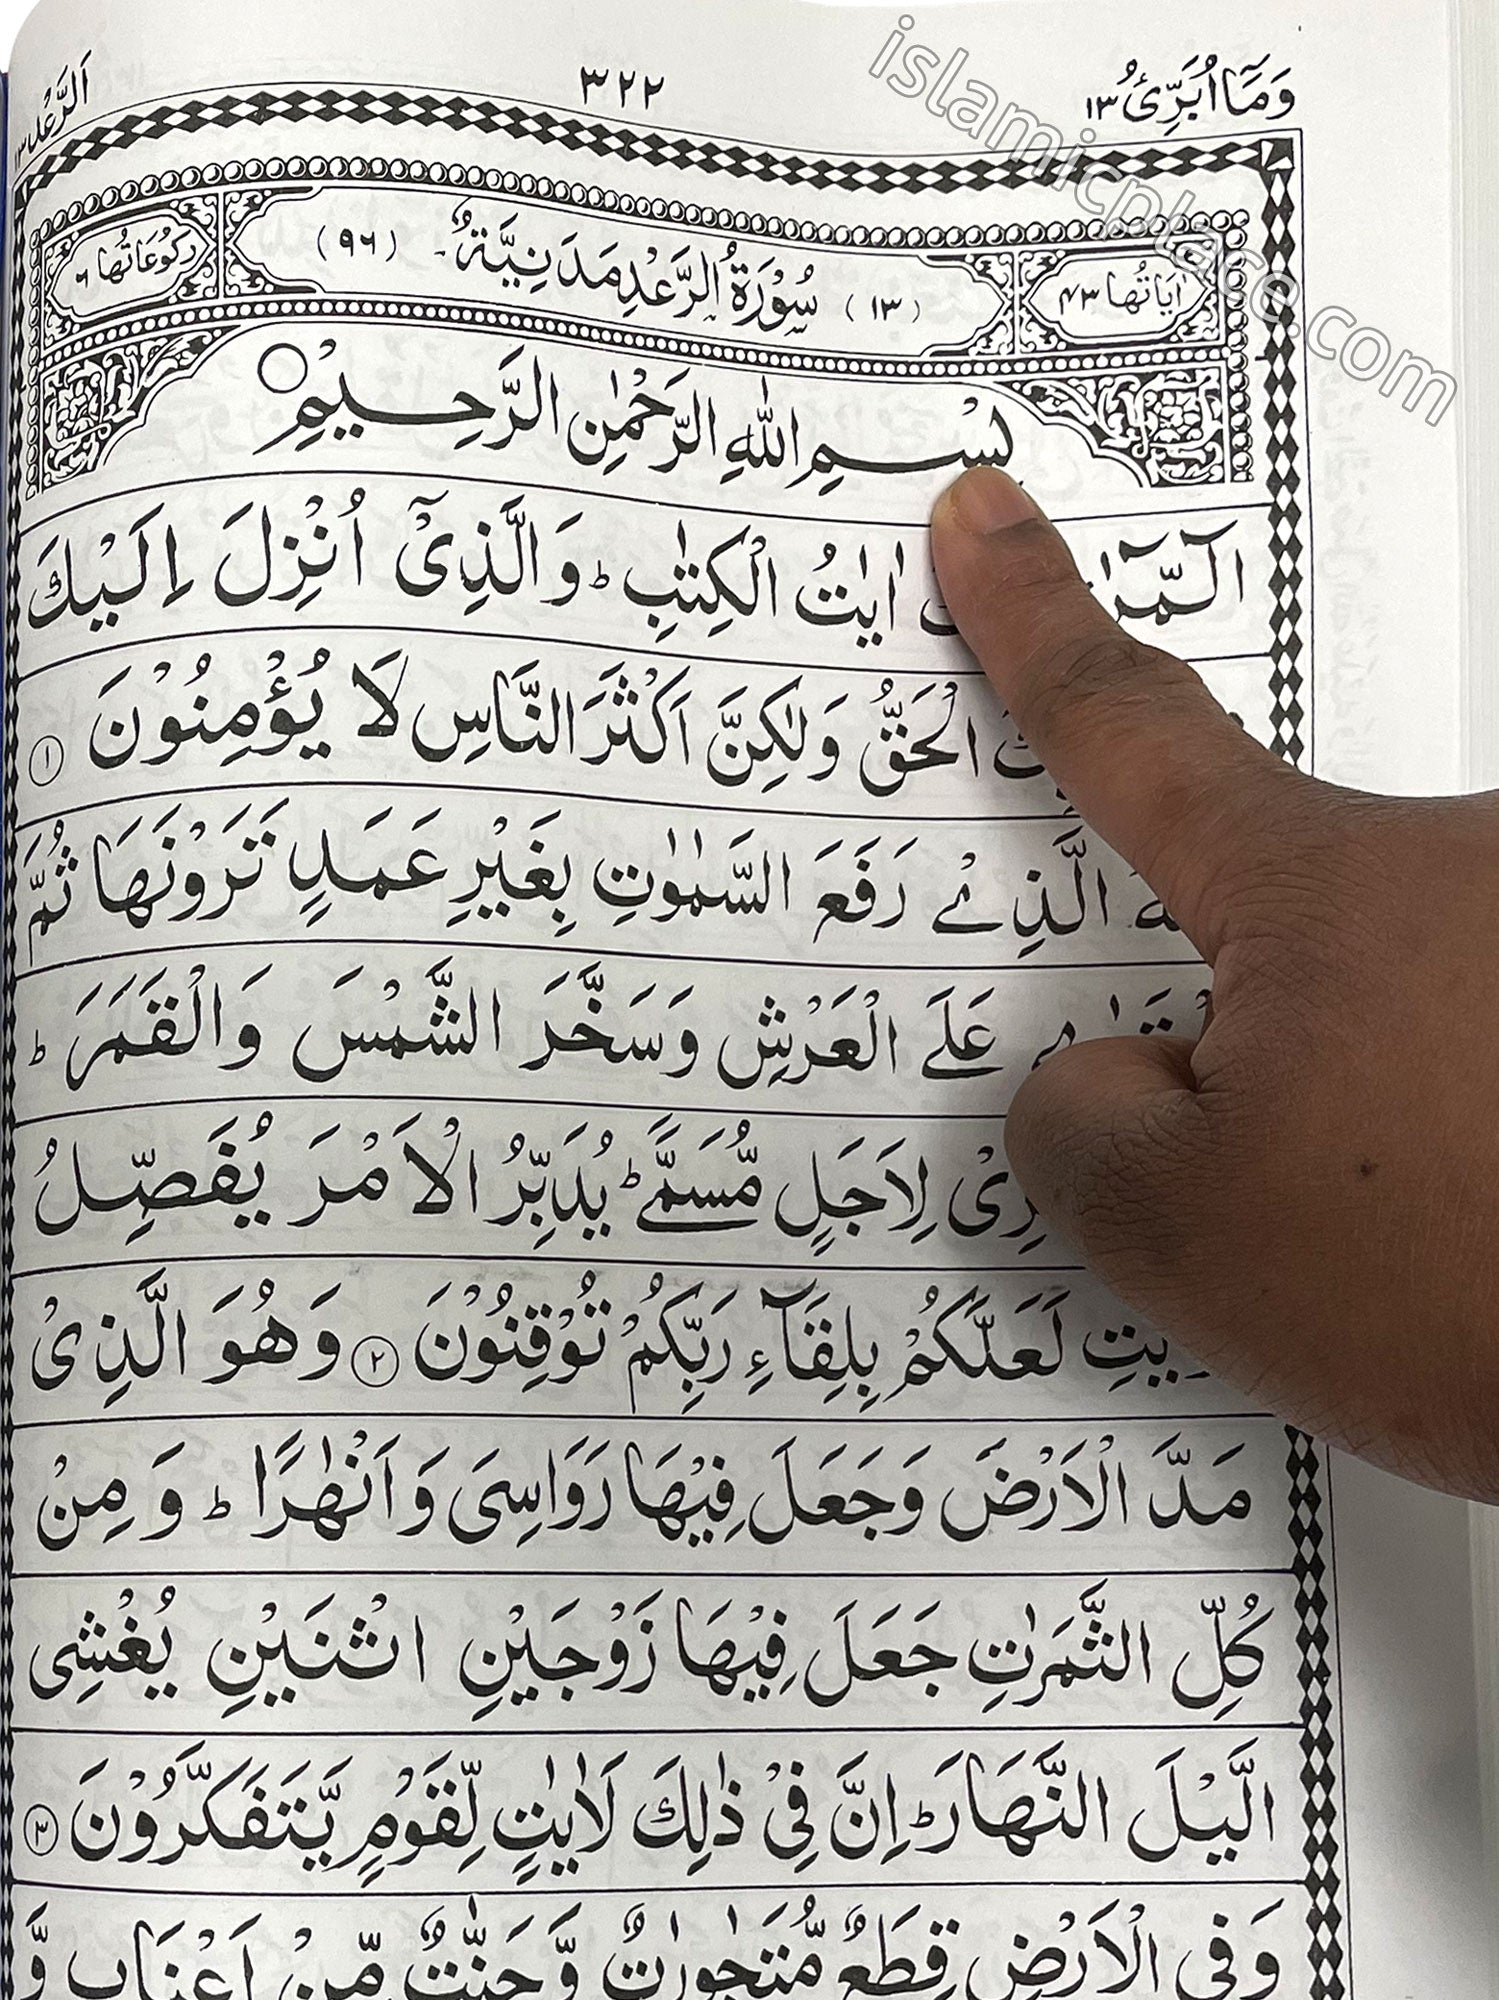 وَمَآ اُبَرِّئُ ١٣
٣٢٢
اَلرَّعْد ١٣
اٰيَاتُهَا ٤٣
(١٣) سُوْرَةُ الرَّعْدِ مَدَنِيَّةٌ (٩٦)
رُكُوْعَاتُهَا ٦
بِسْمِ اللّٰهِ الرَّحْمٰنِ الرَّحِيْمِ
الٓـمّٓرٰ اٰيٰتُ الْكِتٰبِ ؕ وَالَّذِيْٓ اُنْزِلَ اِلَيْكَ
الْحَقُّ وَلٰكِنَّ اَكْثَرَ النَّاسِ لَا يُؤْمِنُوْنَ ۝١
الَّذِيْ رَفَعَ السَّمٰوٰتِ بِغَيْرِ عَمَدٍ تَرَوْنَهَا ثُمَّ
عَلَى الْعَرْشِ وَسَخَّرَ الشَّمْسَ وَالْقَمَرَ ؕ
لِاَجَلٍ مُّسَمًّى ؕ يُدَبِّرُ الْاَمْرَ يُفَصِّلُ
لَعَلَّكُمْ بِلِقَآءِ رَبِّكُمْ تُوْقِنُوْنَ ۝٢ وَهُوَ الَّذِيْ
مَدَّ الْاَرْضَ وَجَعَلَ فِيْهَا رَوَاسِيَ وَاَنْهٰرًا ؕ وَمِنْ
كُلِّ الثَّمَرٰتِ جَعَلَ فِيْهَا زَوْجَيْنِ اثْنَيْنِ يُغْشِي
الَّيْلَ النَّهَارَ ؕ اِنَّ فِيْ ذٰلِكَ لَاٰيٰتٍ لِّقَوْمٍ يَّتَفَكَّرُوْنَ ۝٣
وَفِي الْاَرْضِ قِطَعٌ مُّتَجٰوِرٰتٌ وَّجَنّٰتٌ مِّنْ اَعْنَابٍ وَّ
islamicplace.com